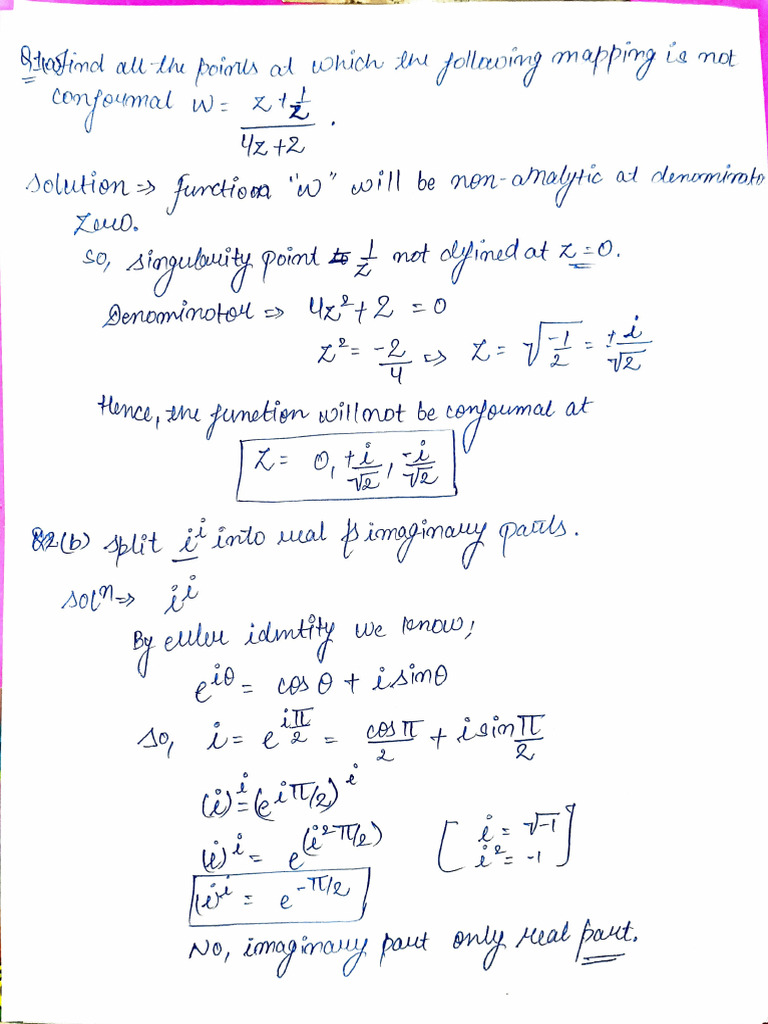 find all the points at which the following mapping is not
conformal w = (z + 1/z) / (4z+2) .
Solution ⇒ function "w" will be non-analytic at denominato
Zero.
So, singularity point 1/z not defined at z = 0.
Denominator ⇒ 4z² + 2 = 0
z² = -2/4 ⇒ z = √(-1/2) = ±i/√2
Hence, the function will not be conformal at
z = 0, +i/√2, -i/√2
Q2(b) split i^i into real & imaginary parts.
Solⁿ ⇒ i^i
By euler idntity we know,
e^(iθ) = cos θ + i sinθ
So, i = e^(iπ/2) = cosπ/2 + i sinπ/2
(i)^i = (e^(iπ/2))^i
(i)^i = e^(i²π/2) [ i = √-1
i² = -1 ]
(i)^i = e^(-π/2)
No, imaginary part only real part.